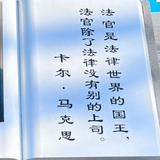 法官是法律世界的国王，
法官除了法律没有别的上司。
卡尔·马克思